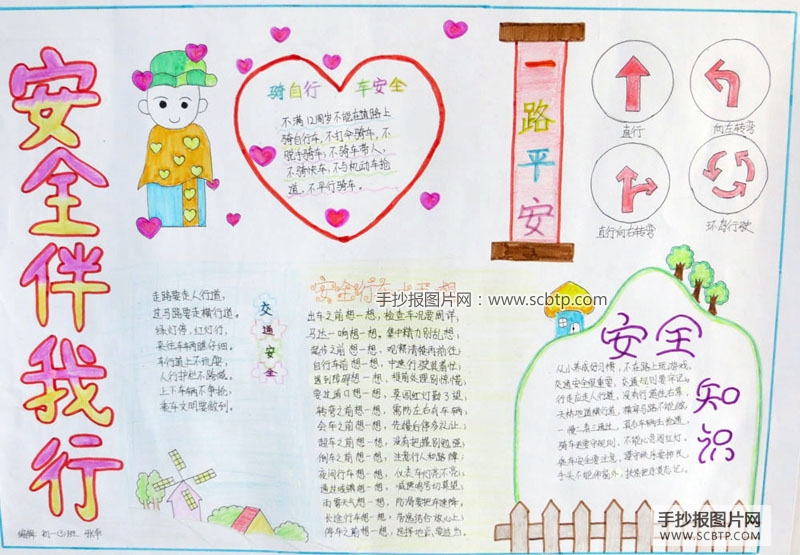 安全伴我行
骑自行 车安全
不满12周岁不能在道路上
骑自行车,不打伞骑车,不
脱手骑车,不骑车带人,
不骑快车,不与机动车抢
道,不平行骑车。
一路平安
直行
向左转弯
直行向右转弯
环岛行驶
走路要走人行道,
过马路要走横行道。
绿灯停,红灯行,
来往车车瞧仔细。
车行道上不玩耍,
人行护栏不跨越。
上下车辆不争抢,
乘车文明要做到。
交通安全
安全行车 想
手抄报图片网:www.scbtp.com
出车之前想一想,检查车况要周详,
马达一响想一想,集中精力别乱想;
起步之前想一想,观察清楚再前往;
自行车前想一想,中速行驶
遇到障碍想一想,提前处理别惊慌;
要过道口想一想,莫闯红灯勤了望
转弯之前想一想,需防左右有车辆
会车之前想一想,先慢后停多礼让;
超车之前想一想,没有把握别勉强;
倒车之前想一想,注意行人和路障;
夜间行车想一想,仪表车灯亮不亮;
通过城镇想一想,减速鸣号切莫忘
雨雾天气想一想,防滑要把车速降,
长途行车想一想,劳逸结合放心上;
停车之前想一想,选择地点要适当。
安全知识
从小养成好习惯,不在路上玩游戏。
交通安全很重要,交通规则要牢记。
行走应走人行道,没有行道往右靠,
天桥地道横行道,横穿马路不能做,
一慢二看三通过,莫与车辆去抢道。
骑车更要守规则,不能心急闯红灯。
乘车安全要注意,遵守秩序要排民。
手头不能伸窗外,扶紧把手莫忘记。
编辑:初一(3)班
手抄报图片网
WWW.SCBTP.COM